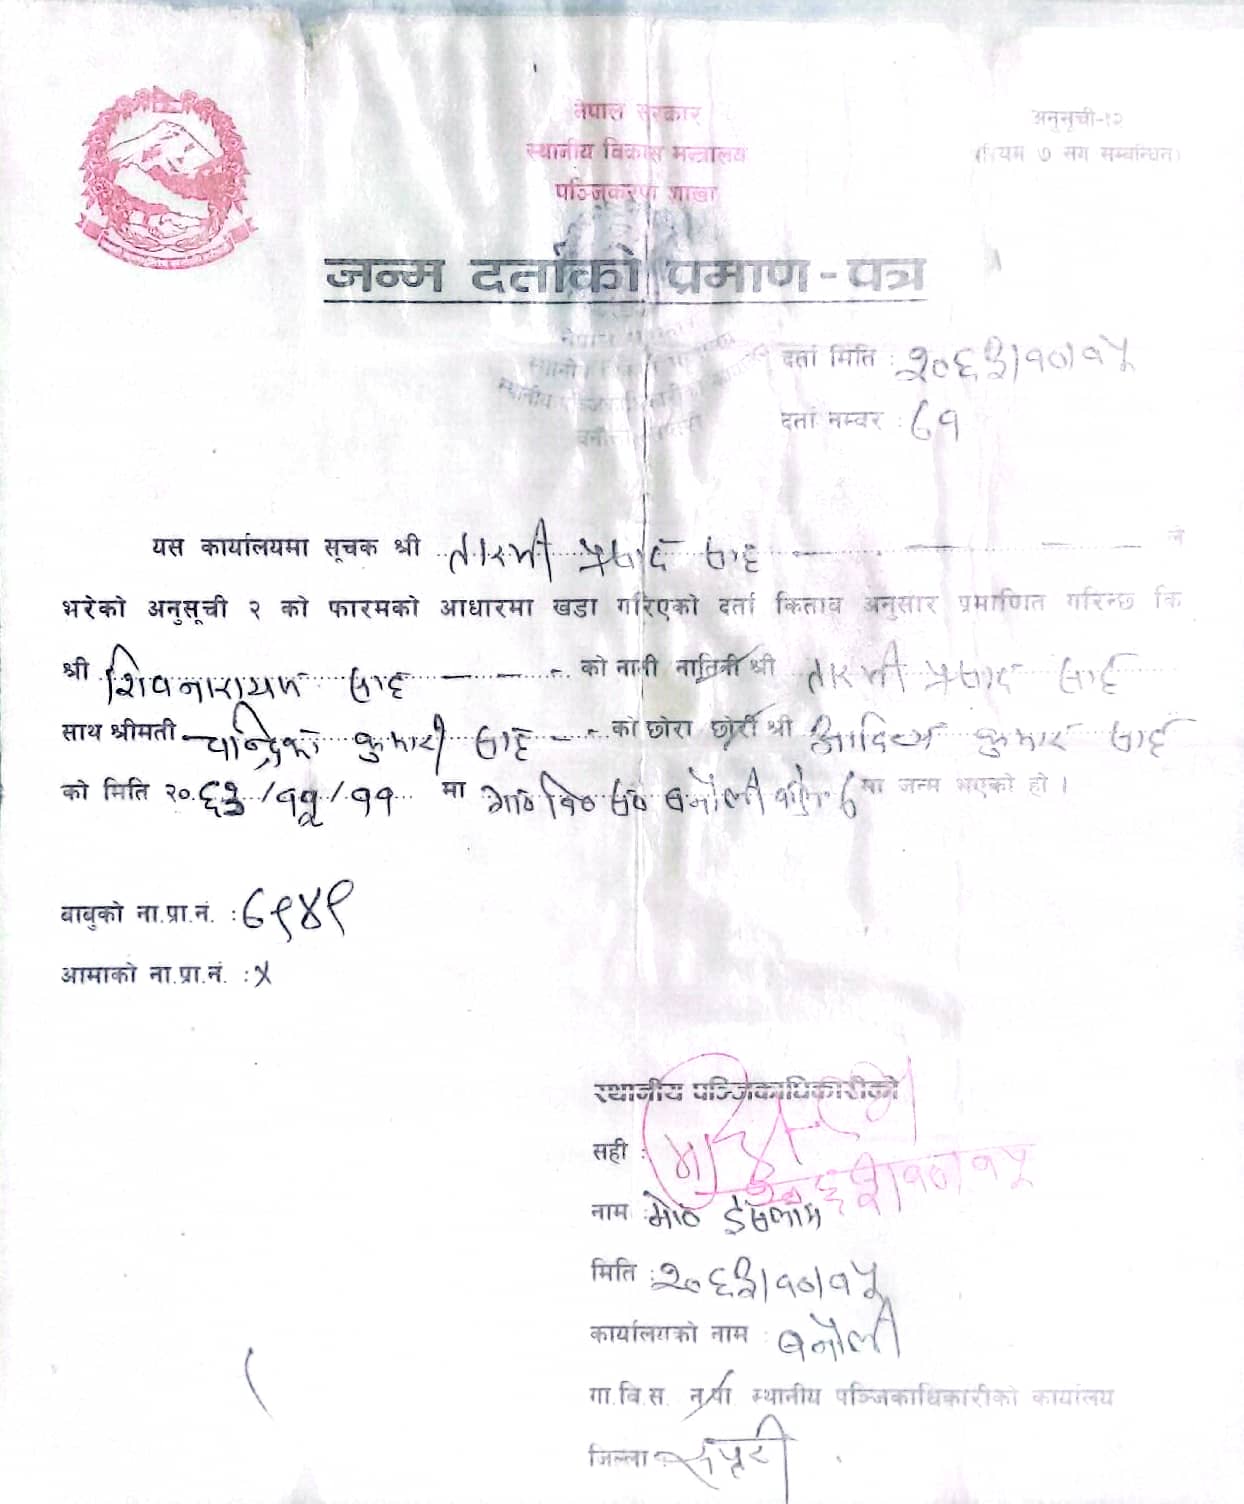 नेपाल सरकार
स्थानीय विकास मन्त्रालय
पञ्जिकरण शाखा
अनुसूची-१२
(नियम ७ सँग सम्बन्धित)
जन्म दर्ताको प्रमाण-पत्र
दर्ता मिति : २०६३।१०।१५
दर्ता नम्बर : ८१
यस कार्यालयमा सूचक श्री तारनी प्रसाद साह ले
भरेको अनुसूची २ को फारमको आधारमा खडा गरिएको दर्ता किताब अनुसार प्रमाणित गरिन्छ कि
श्री शिवनारायण साह को नाती नातिनी श्री तारनी प्रसाद साह
साथ श्रीमती चान्द्रिका कुमारी साह को छोरा छोरी श्री आदित्य कुमार साह
को मिति २०.६३/११/११ मा गा० वि० स० बनौली मा जन्म भएको हो ।
बाबुको ना.प्रा.नं. : ८९४९
आमाको ना.प्रा.नं. : x
स्थानीय पञ्जिकाधिकारीको
सही :
२०६३।१०।१५
नाम : मो० ईसलाम
मिति : २०६३।१०।१५
कार्यालयको नाम : बनौली
गा.वि.स. न.पा स्थानीय पञ्जिकाधिकारीको कार्यालय
जिल्ला सप्तरी